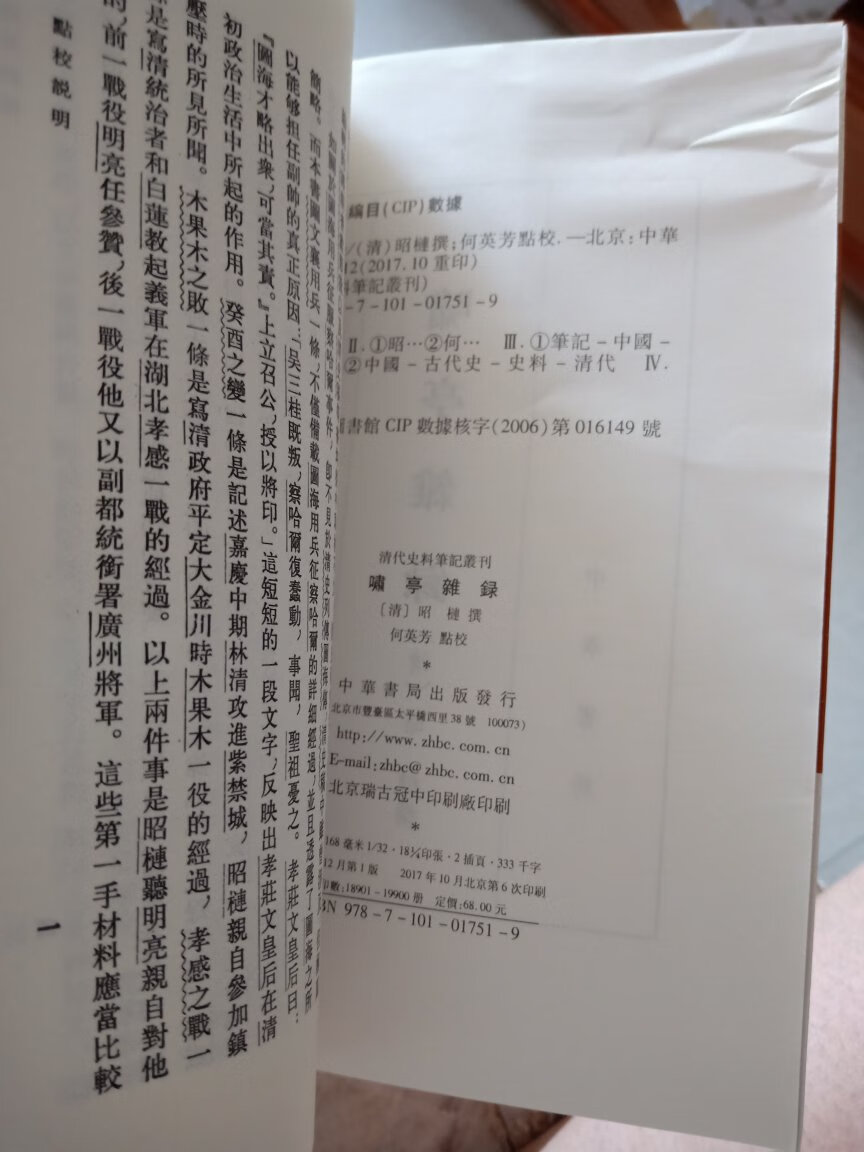 編目(CIP)數據
/(清)昭槤撰;何英芳點校.—北京:中華
12(2017.10重印)
筆記叢刊)
-7-101-01751-9
Ⅱ.①昭…②何… Ⅲ.①筆記-中國-
②中國-古代史-史料-清代 Ⅳ.
書館CIP數據核字(2006)第016149號
清代史料筆記叢刊
嘯亭雜録
〔清〕昭槤 撰
何英芳 點校
*
中華書局出版發行
北京市豐臺區太平橋西里38號 100073)
http://www.zhbc.com.cn
E-mail:zhbc@zhbc.com.cn
北京瑞古冠中印刷廠印刷
*
168毫米1/32·18¼印張·2插頁·333千字
12月第1版 2017年10月北京第6次印刷
印數:18901-19900册 定價:68.00元
BN 978-7-101-01751-9
簡略。而本書圖文襄用兵一條,不僅備載圖海用兵征察哈爾的詳細經過,並且透露了圖海之所
以能够担任副帥的真正原因:「吴三桂既叛,察哈爾復蠢動,事聞,聖祖憂之。孝莊文皇后曰:
『圖海才略出衆,可當其責。』上立召公,授以將印。」這短短的一段文字,反映出孝莊文皇后在清
初政治生活中所起的作用。癸酉之變一條是記述嘉慶中期林清攻進紫禁城,昭槤親自參加鎮
壓時的所見所聞。木果木之敗一條是寫清政府平定大金川時木果木一役的經過,孝感之戰一
條是寫清統治者和白蓮教起義軍在湖北孝感一戰的經過。以上兩件事是昭槤聽明亮親自對他
的,前一戰役明亮任參贊,後一戰役他又以副都統銜署廣州將軍。這些第一手材料應當比較
點校説明
一